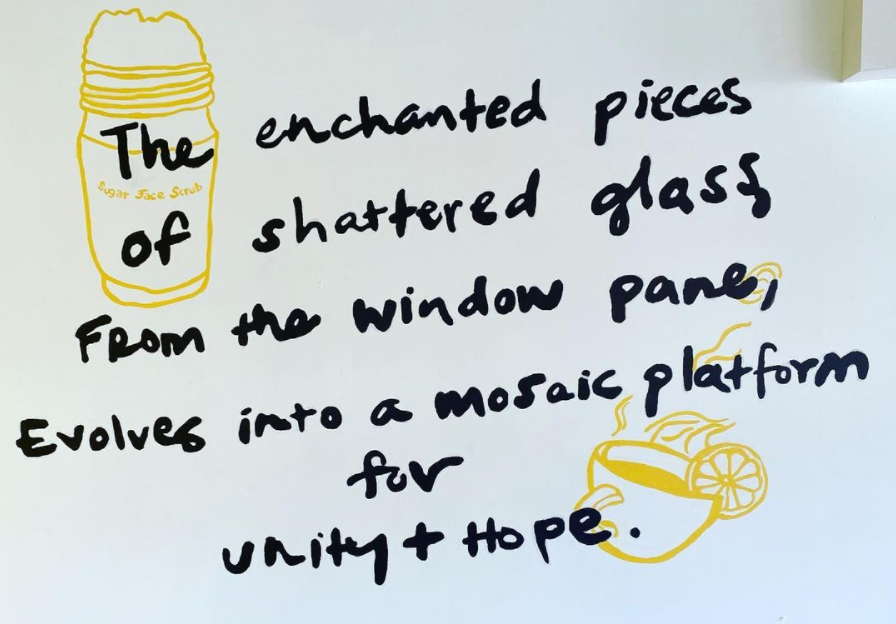 The enchanted pieces
Sugar Face Scrub
of shattered glass
From the window pane,
Evolves into a mosaic platform
for
unity + Hope.